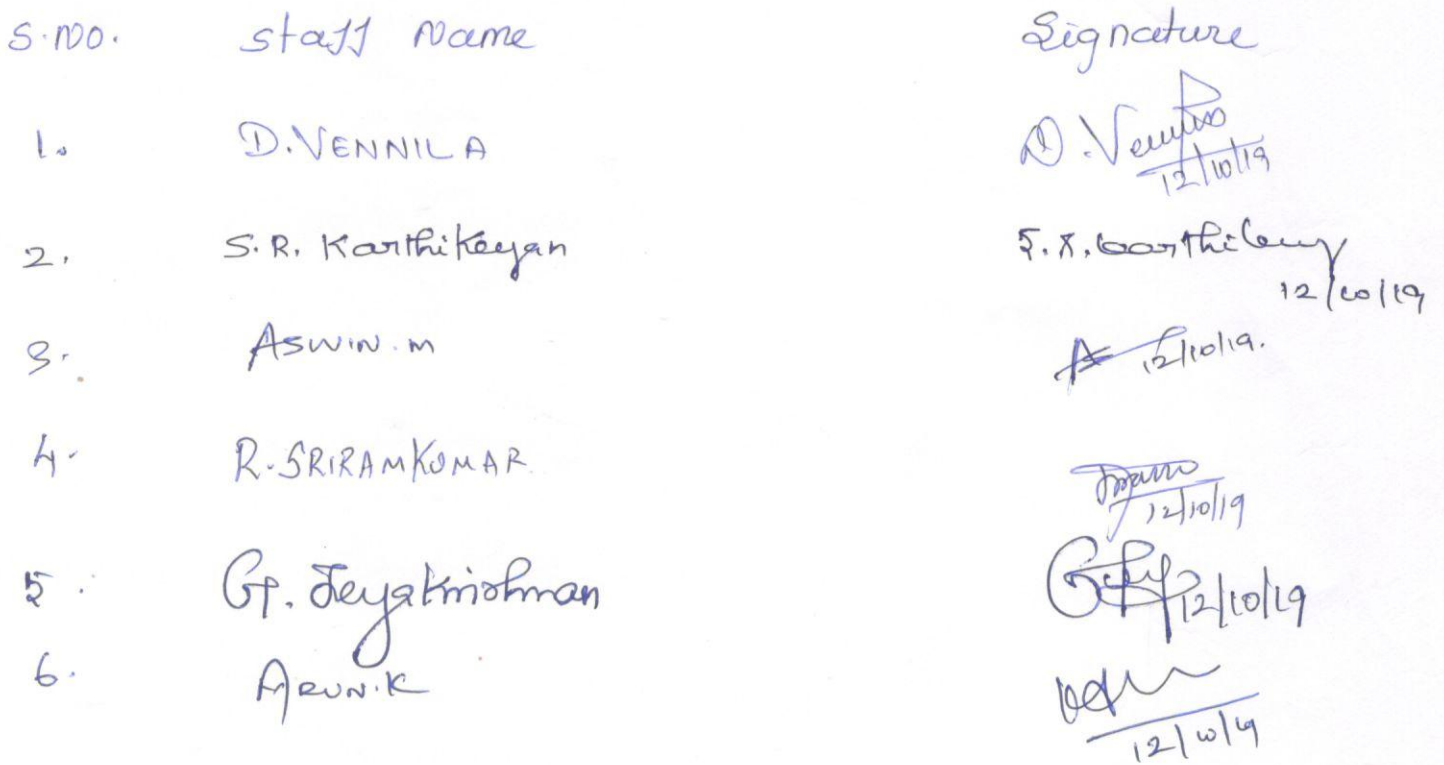 S.NO. Staff Name Signature
1. D.VENNILA D.Vennila
12/10/19
2. S.R. Karthikeyan S.R. Karthikeyan
12/10/19
3. ASWIN.M A 12/10/19.
4. R.SRIRAMKUMAR
12/10/19
5. G. Jeyakrishnan 12/10/19
6. ARUN.K
12/10/19